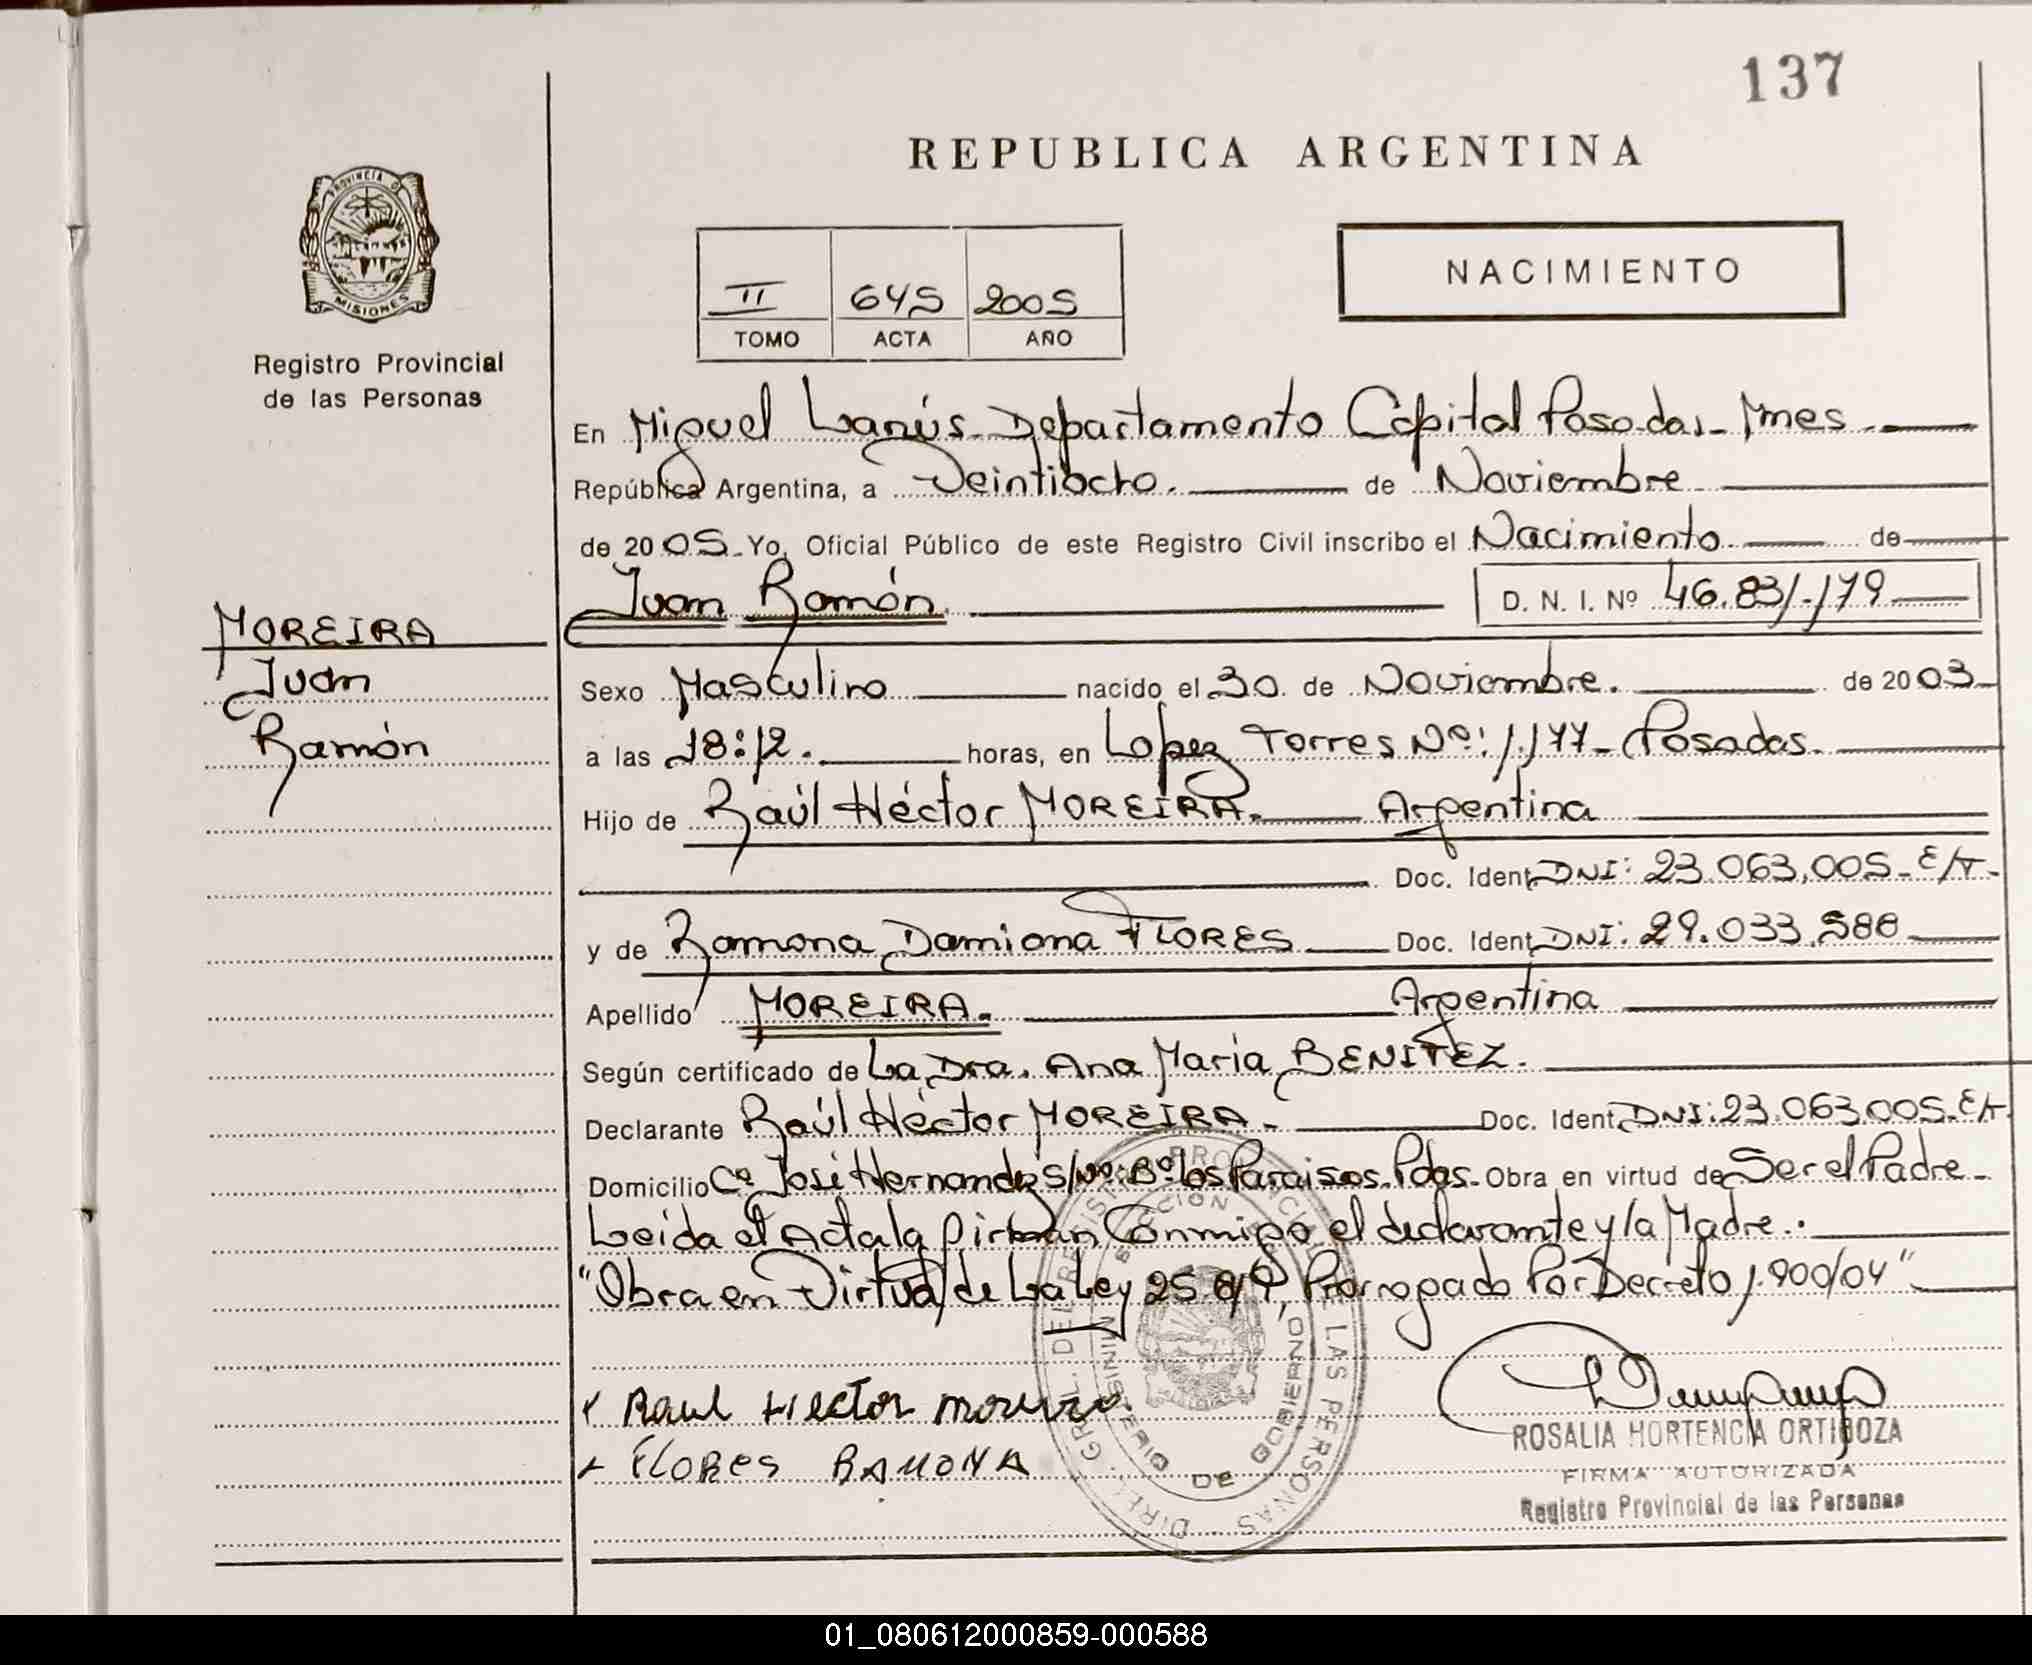 137
REPUBLICA ARGENTINA
PROVINCIA DE
MISIONES
Registro Provincial
de las Personas
II 645 2005
TOMO ACTA AÑO
NACIMIENTO
En Miguel Lanús - Departamento Capital Posadas - Mnes
República Argentina, a Veintiocho. de Noviembre
de 2005 - Yo, Oficial Público de este Registro Civil inscribo el Nacimiento de
Juan Ramón D. N. I. Nº 46.831.179
MOREIRA
Juan
Ramón
Sexo Masculino nacido el 30 de Noviembre. de 2003
a las 18:12. horas, en Lopez Torres Nº: 1.177 - Posadas.
Hijo de Raúl Héctor MOREIRA. Argentina
Doc. Ident. DNI: 23.063.005 - E/T -
y de Ramona Damiana FLORES Doc. Ident. DNI: 29.033.588
Apellido MOREIRA. Argentina
Según certificado de La Dra. Ana María BENITEZ.
Declarante Raúl Héctor MOREIRA - Doc. Ident. DNI: 23.063.005 - E/T.
Domicilio Cº José Hernandez S/Nº: Bº los Paraisos. Pdas - Obra en virtud de Ser el Padre -
Leída el Acta la firman Conmigo el declarante y la Madre.
"Obra en Virtud de La Ley 25.819, Prorrogado Por Decreto 1.900/04"
Raul Hector Moreira
FLORES RAMONA
DIREC. GRAL. DEL REGISTRO PROVINCIAL DE LAS PERSONAS
MINISTERIO DE GOBIERNO
ROSALIA HORTENCIA ORTIGOZA
FIRMA AUTORIZADA
Registro Provincial de las Personas
01_080612000859-000588